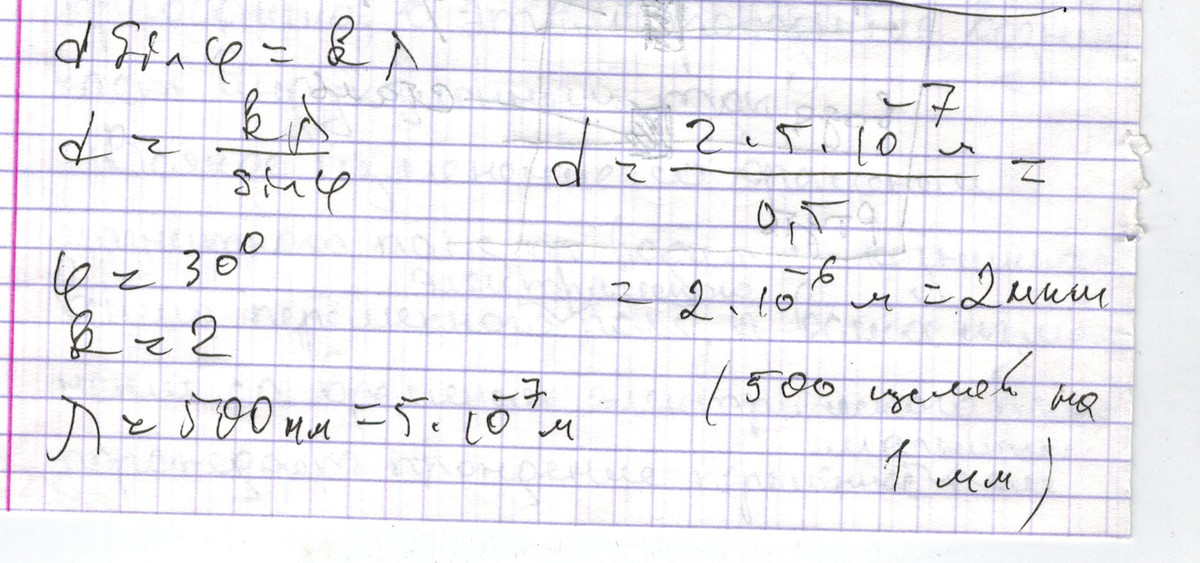 d sin φ = k λ
d = kλ / sin φ
φ = 30⁰
k = 2
λ = 500 нм = 5 · 10⁻⁷ м
d = 2 · 5 · 10⁻⁷ м / 0,5 =
= 2 · 10⁻⁶ м = 2 мкм
(500 щелей на
1 мм)